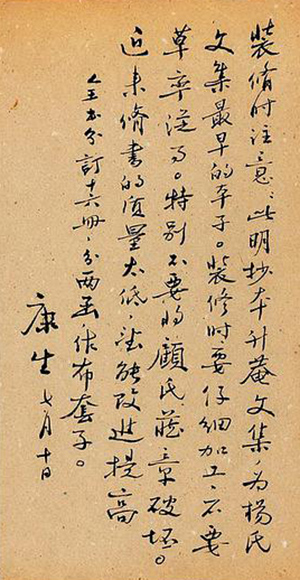 装脩时注意：此明抄本升菴文集，为杨氏
文集最早的本子。装修时要仔细加工，不要
草率从事。特别不要将顾氏藏章破坏。
近来脩书的质量太低，望能改进提高
全书分订十六册，分两函，作布套子。
康生 七月十日